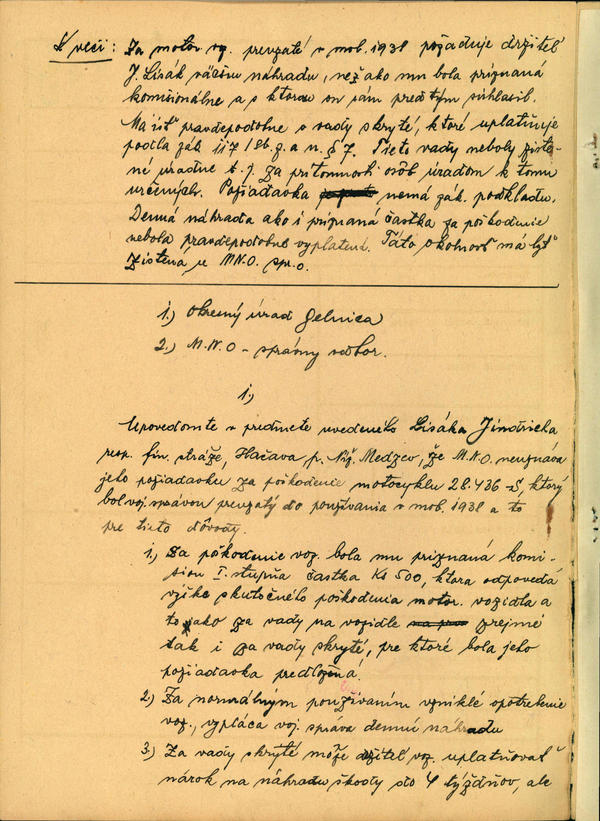 K veci: Za motor. voz. prevzaté v mob. 1938 požaduje držiteľ
J. Lisák väčšiu náhradu, než ako mu bola priznaná
komisionálne a s ktorou on sám predtým súhlasil.
Má ísť pravdepodobne o vady skryté, ktoré uplatňuje
podľa zák. 117/ Sb. z. a n. § 7. Tieto vady neboly ziste-
né úradne t. j. za prítomnosti osôb úradom k tomu
určených. Požiadavka nemá zák. podkladu.
Denná náhrada ako i priznaná čiastka za poškodenie
nebola pravdepodobne vyplatená. Táto okolnosť má byť
zistená u MNO. sp. o.
1.) Okresný úrad Gelnica
2.) M.N.O - správny odbor.
1.)
Upovedomte v predmete uvedeného Lisáka Jindricha
resp. fin. stráže, Hačava p. Niž. Medzev, že M.N.O. neuznáva
jeho požiadavku za poškodenie motocyklu 28.436-S, ktorý
bol voj. správou prevzatý do používania v mob. 1938 a to
pre tieto dôvody.
1.) Za poškodenie voz. bola mu priznaná komi-
siou I. stupňa čiastka Ks 500, ktora odpovedá
výške skutočného poškodenia motor. vozidla a
to jako za vady na vozidle zrejmé
tak i za vady skryté, pre ktoré bola jeho
požiadavka predložená!
2) Za normálnym používaním vzniklé opotrebenie
voz., vypláca voj. správa dennú náhradu
3) Za vady skryté môže držiteľ voz. uplatňovať
nárok na náhradu škody do 4 týždňov, ale